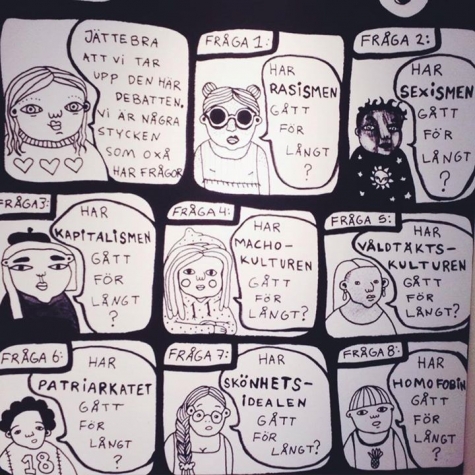 JÄTTEBRA
ATT VI TAR
UPP DEN HÄR
DEBATTEN.
VI ÄR NÅGRA
STYCKEN
SOM OXÅ
HAR FRÅGOR
FRÅGA 1:
HAR
RASISMEN
GÅTT
FÖR
LÅNGT
?
FRÅGA 2:
HAR
SEXISMEN
GÅTT
FÖR
LÅNGT
?
FRÅGA 3:
HAR
KAPITALISMEN
GÅTT
FÖR
LÅNGT
?
FRÅGA 4:
HAR
MACHO-
KULTUREN
GÅTT
FÖR
LÅNGT?
FRÅGA 5:
HAR
VÅLDTÄKTS-
KULTUREN
GÅTT
FÖR
LÅNGT?
FRÅGA 6:
HAR
PATRIARKATET
GÅTT
FÖR
LÅNGT
?
18
FRÅGA 7:
HAR
SKÖNHETS-
IDEALEN
GÅTT
FÖR
LÅNGT?
FRÅGA 8:
HAR
HOMOFOBIN
GÅTT
FÖR
LÅNGT
?